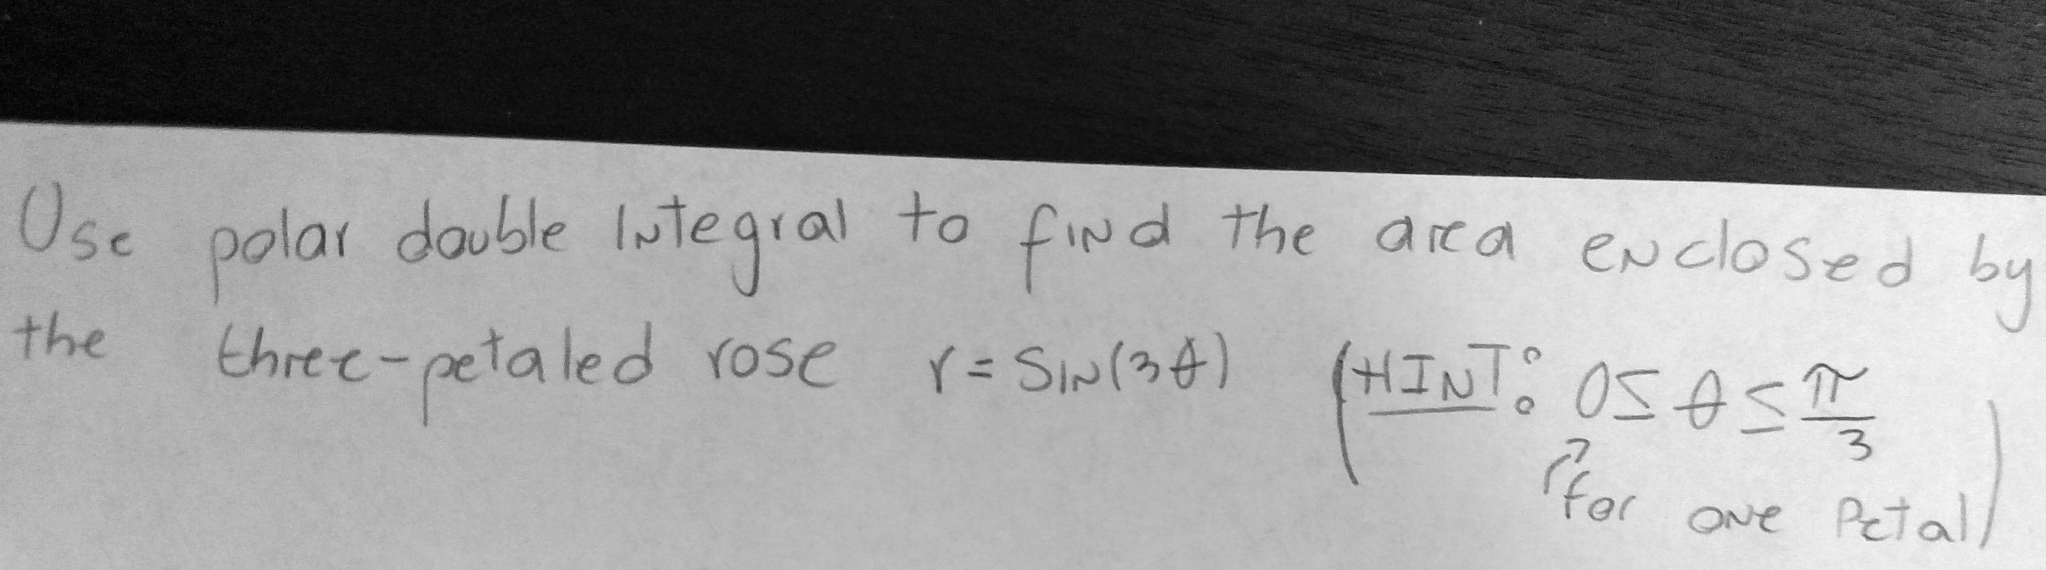 Use polar double Integral to find the area enclosed by
the three-petaled rose r = sin(3θ) (HINT: 0 ≤ θ ≤ π/3
for one Petal)